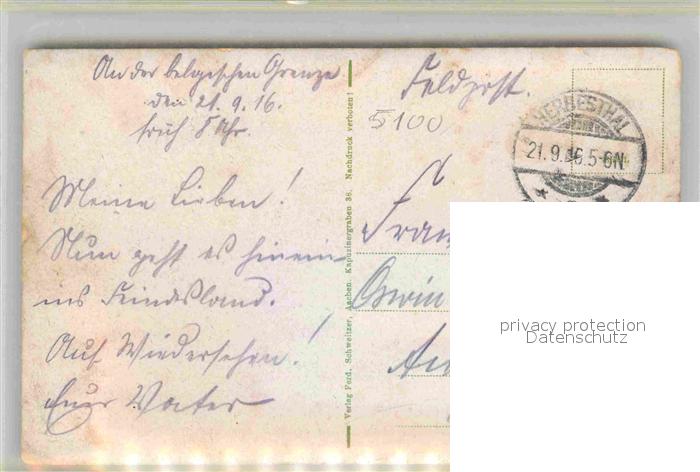 An der belgischen Grenze
den 21.9.16.
früh 8 Uhr.
Meine Lieben!
Nun geht es hinein
ins Feindesland.
Auf Wiedersehen!
Euer Vater
Verlag Ferd. Schweitzer, Aachen. Kapuzinergraben 36. Nachdruck verboten!
Feldpost.
5100
HERBESTHAL
21.9.16.5-6N
Oswin
privacy protection
Datenschutz